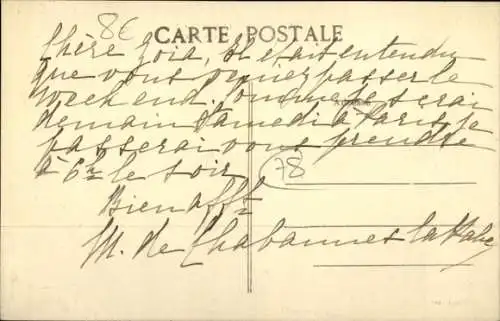 8€
CARTE POSTALE
Chère Zoia, Il était entendu
que vous veniez passer le
week end. 
demain Samedi à Paris je
passerai vous prendre
à 6h le soir
78
Bien aff.
M. de Chabannes la Palice